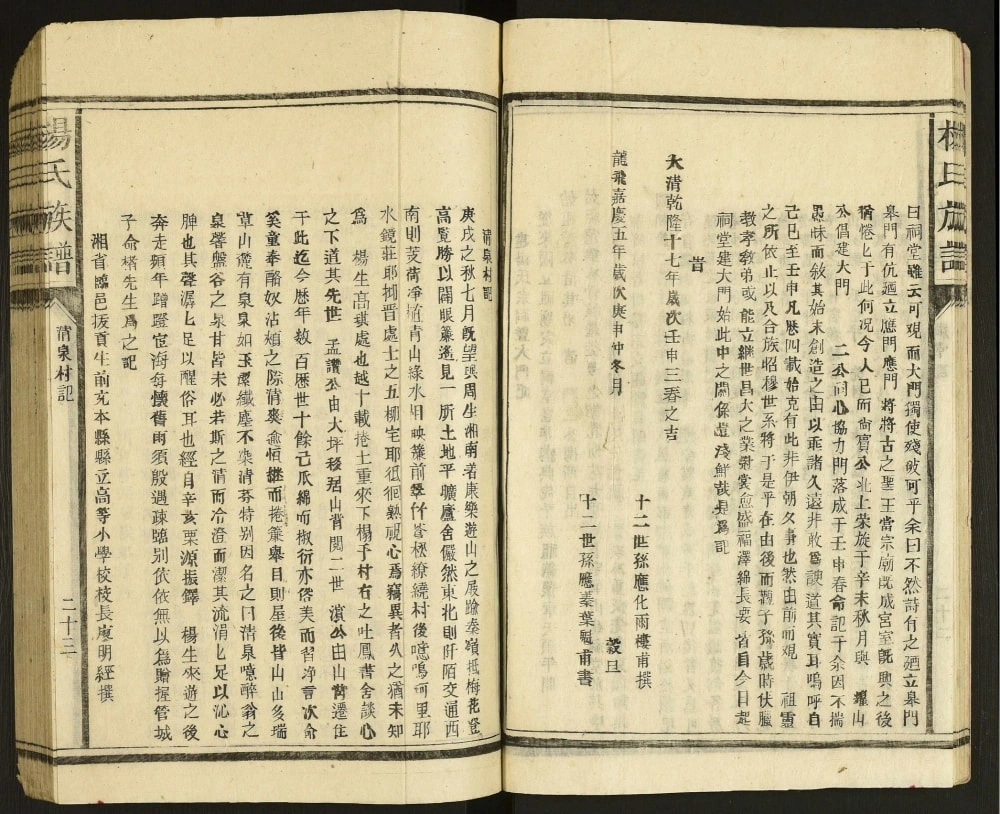 楊氏族譜
曰祠堂雖云可觀而大門獨使殘破可乎余曰不然詩有之廼立皋門
皋門有伉廼立應門應門將將古之聖王當宗廟既成宮室既興之後
猶惓匕于此何况今人已而尚寶公北上榮旋于辛未秋月與　燿山
公倡建大門　二公同心協力門落成于壬申春命記于余因不揣
愚昧而敘其始末創造之由以垂諸久遠非敢爲諛道其實耳嗚呼自
己巳至壬申凡歷四載始克有此非伊朝夕事也然由前而观　祖靈
之所依止以及合族昭穆世系將于是乎在由後而觀子孫歲時伏臘
教孝教弟或能立繼世昌大之業黼裳愈盛福澤綿長要皆自今日起
祠堂建大門始此中之關係豈淺鮮哉是爲記
旹
大清乾隆十七年歲次壬申三春之吉
十二世孫應化雨樓甫撰
穀旦
龍飛嘉慶五年歲次庚申仲冬月
十二世孫應蓁葉魁甫書
清泉村記
庚戌之秋七月既望與周生湘南着康樂遊山之屐踰秦嶺抵梅花登
高覧勝以闊眼簾遙見一所土地平曠廬舍儼然東北則阡陌交通西
南則芰荷凈植青山綠水相映簷前翠竹蒼松繚繞村後噫嗚何里耶
水鏡莊耶抑晉處士之五柳宅耶徘徊熟視心爲竊異者久之猶未知
爲　楊生高琪處也越十載捲土重來下榻予村右之吐鳳書舍談心
之下道其先世　孟讚公由大坪移居山背閲二世　濵公由山背遷住
于此迄今歷年数百歷世十餘己瓜綿而椒衍亦俗美而習淨言次命
奚童奉酪奴沾頰之際清爽愈恒繼而捲簾舉目則屋後皆山山多瑞
草山麓有泉泉如玉液纖塵不染清芬特别因名之曰清泉噫醉翁之
泉馨盤谷之泉甘皆未必若斯之清而冷澄而潔其流涓匕足以沁心
脾也其聲潺匕足以醒俗耳也經自辛亥栗源振鐸　楊生來遊之後
奔走頻年蹭蹬宦海每懷舊雨須殷遇疎臨别依依無以爲贈握管城
子命楮先生爲之記
湘省臨邑拔貢生前充本縣縣立高等小學校校長廖明經撰
楊氏族譜
清泉村記
二十三